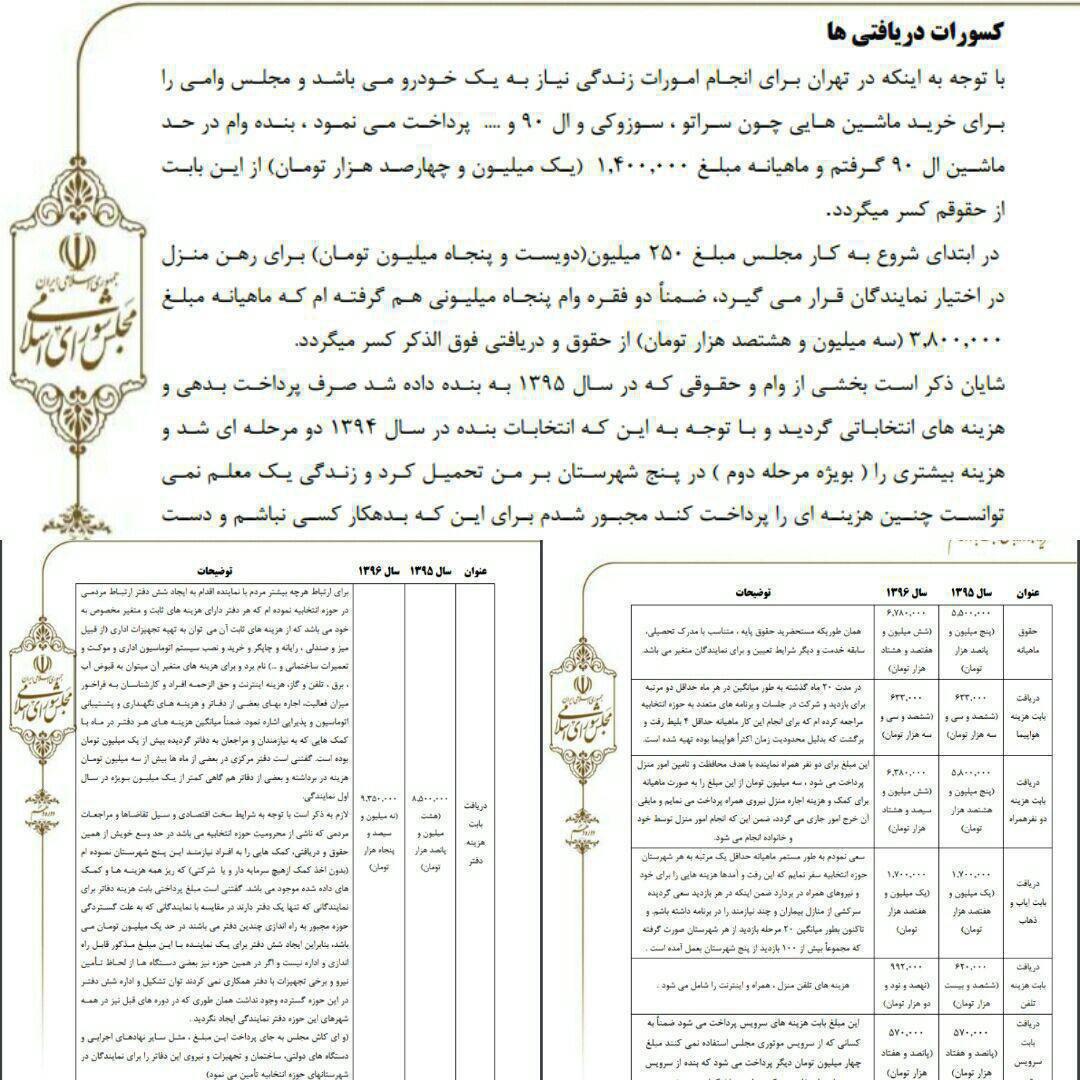 کسورات دریافتی ها
با توجه به اینکه در تهران برای انجام امورات زندگی نیاز به یک خودرو می باشد و مجلس وامی را
برای خرید ماشین هایی چون سراتو ، سوزوکی و ال ۹۰ و .... پرداخت می نمود ، بنده وام در حد
ماشین ال ۹۰ گرفتم و ماهیانه مبلغ ۱,۴۰۰,۰۰۰ (یک میلیون و چهارصد هزار تومان) از این بابت
از حقوقم کسر میگردد.
در ابتدای شروع به کار مجلس مبلغ ۲۵۰ میلیون(دویست و پنجاه میلیون تومان) برای رهن منزل
در اختیار نمایندگان قرار می گیرد، ضمناً دو فقره وام پنجاه میلیونی هم گرفته ام که ماهیانه مبلغ
۳,۸۰۰,۰۰۰ (سه میلیون و هشتصد هزار تومان) از حقوق و دریافتی فوق الذکر کسر میگردد.
شایان ذکر است بخشی از وام و حقوقی که در سال ۱۳۹۵ به بنده داده شد صرف پرداخت بدهی و
هزینه های انتخاباتی گردید و با توجه به این که انتخابات بنده در سال ۱۳۹۴ دو مرحله ای شد و
هزینه بیشتری را ( بویژه مرحله دوم ) در پنج شهرستان بر من تحمیل کرد و زندگی یک معلم نمی
توانست چنین هزینه ای را پرداخت کند مجبور شدم برای این که بدهکار کسی نباشم و دست
جمهوری اسلامی ایران
مجلس شورای اسلامی
عنوان سال ۱۳۹۵ سال ۱۳۹۶ توضیحات
حقوق ماهیانه
۵,۵۰۰,۰۰۰
(پنج میلیون و
پانصد هزار
تومان)
۶,۷۸۰,۰۰۰
(شش میلیون و
هفتصد و هشتاد
هزار تومان)
همان طوریکه مستحضرید حقوق پایه ، متناسب با مدرک تحصیلی،
سابقه خدمت و دیگر شرایط تعیین و برای نمایندگان متغیر می باشد.
دریافت
بابت هزینه
هواپیما
۶۳۳,۰۰۰
(ششصد و سی و
سه هزار تومان)
۶۳۳,۰۰۰
(ششصد و سی و
سه هزار تومان)
در مدت ۲۰ ماه گذشته به طور میانگین در هر ماه حداقل دو مرتبه
برای بازدید و شرکت در جلسات و برنامه های متعدد به حوزه انتخابیه
مراجعه کرده ام که برای انجام این کار ماهیانه حداقل ۴ بلیط رفت و
برگشت که بدلیل محدودیت زمان اکثراً هواپیما بوده تهیه شده است.
دریافت
بابت هزینه
دو نفرهمراه
۵,۸۰۰,۰۰۰
(پنج میلیون و
هشتصد هزار
تومان)
۶,۳۸۰,۰۰۰
(شش میلیون و
سیصد و هشتاد
هزار تومان)
این مبلغ برای دو نفر همراه نماینده با هدف محافظت و تامین امور منزل
پرداخت می شود ، سه میلیون تومان از این مبلغ را به صورت ماهیانه
برای کمک و هزینه اجاره منزل نیروی همراه پرداخت می نمایم و مابقی
آن خرج امور جاری می گردد، ضمن این که انجام امور منزل توسط خود
و خانواده انجام می شود.
دریافت
بابت ایاب و
ذهاب
۱,۷۰۰,۰۰۰
(یک میلیون و
هفتصد هزار
تومان)
۱,۷۰۰,۰۰۰
(یک میلیون و
هفتصد هزار
تومان)
سعی نمودم به طور مستمر ماهیانه حداقل یک مرتبه به هر شهرستان
حوزه انتخابیه سفر نمایم که این رفت و آمدها هزینه هایی را برای خود
و نیروهای همراه در بردارد ضمن اینکه در هر بازدید سعی گردیده
سرکشی از منازل بیماران و چند نیازمند را در برنامه داشته باشم. و
تاکنون بطور میانگین ۲۰ مرحله بازدید از هر شهرستان صورت گرفته
که مجموعاً بیش از ۱۰۰ بازدید از پنج شهرستان بعمل آمده است .
دریافت
بابت هزینه
تلفن
۶۲۰,۰۰۰
(ششصد و بیست
هزار تومان)
۹۹۲,۰۰۰
(نهصد و نود و
دو هزار تومان)
هزینه های تلفن منزل ، همراه و اینترنت را شامل می شود .
دریافت
بابت
سرویس
۵۷۰,۰۰۰
(پانصد و هفتاد
هزار تومان)
۵۷۰,۰۰۰
(پانصد و هفتاد
هزار تومان)
این مبلغ بابت هزینه های سرویس پرداخت می شود ضمناً به
کسانی که از سرویس موتوری مجلس استفاده نمی کنند مبلغ
چهار میلیون تومان دیگر پرداخت می شود که بنده از سرویس
جمهوری اسلامی ایران
مجلس شورای اسلامی
عنوان سال ۱۳۹۵ سال ۱۳۹۶ توضیحات
دریافت
بابت
هزینه
دفتر
۸,۵۰۰,۰۰۰
(هشت
میلیون و
پانصد هزار
تومان)
۹,۳۵۰,۰۰۰
(نه میلیون و
سیصد و
پنجاه هزار
تومان)
برای ارتباط هرچه بیشتر مردم با نماینده اقدام به ایجاد شش دفتر ارتباط مردمی
در حوزه انتخابیه نموده ام که هر دفتر دارای هزینه های ثابت و متغیر مخصوص به
خود می باشد که از هزینه های ثابت آن می توان به تهیه تجهیزات اداری (از قبیل
میز و صندلی ، رایانه و چاپگر و خرید و نصب سیستم اتوماسیون اداری و موکت و
تعمیرات ساختمانی و ...) نام برد و برای هزینه های متغیر آن میتوان به قبوض آب
، برق ، تلفن و گاز، هزینه اینترنت و حق الزحمه افراد و کارشناسان به فراخور
میزان فعالیت، اجاره بهای بعضی از دفاتر و هزینه های نگهداری و پشتیبانی
اتوماسیون و پذیرایی اشاره نمود. ضمناً میانگین هزینه های هر دفتر در ماه با
کمک هایی که به نیازمندان و مراجعان به دفاتر گردیده بیش از یک میلیون تومان
بوده است. گفتنی است دفتر مرکزی در بعضی از ماه ها بیش از سه میلیون تومان
هزینه در برداشته و بعضی از دفاتر هم گاهی کمتر از یک میلیون بـویژه در سال
اول نمایندگی.
لازم به ذکر است با توجه به شرایط سخت اقتصادی و سیل تقاضاها و مراجعات
مردمی که ناشی از محرومیت حوزه انتخابیه می باشد در حد وسع خویش از همین
حقوق و دریافتی، کمک هایی را به افراد نیازمند این پنج شهرستان نموده ام
(بدون اخذ کمک ازهیچ سرمایه دار و یا شرکتی) که ریز همه هزینه ها و کمک
های داده شده موجود می باشد. گفتنی است مبلغ پرداختی بابت هزینه دفاتر برای
نمایندگانی که تنها یک دفتر دارند در مقایسه با نمایندگانی که به علت گستردگی
حوزه مجبور به راه اندازی چندین دفتر می باشند در حد یک میلیون تومان می
باشد، بنابراین ایجاد شش دفتر برای یک نماینده با این مبلغ مذکور قابل راه
اندازی و اداره نیست و اگر در همین حوزه نیز بعضی دستگاه ها از لحاظ تأمین
نیرو و برخی تجهیزات با دفتر همکاری نمی کردند توان تشکیل و اداره شش دفتر
در این حوزه گسترده وجود نداشت همان طوری که در دوره های قبل نیز در همه
شهرهای این حوزه دفتر نمایندگی ایجاد نگردید .
(و ای کاش مجلس به جای پرداخت این مبلغ ، مثل سایر نهادهای اجرایی و
دستگاه های دولتی، ساختمان و تجهیزات و نیروی این دفاتر را برای نمایندگان در
شهرستانهای حوزه انتخابیه تأمین می نمود)
جمهوری اسلامی ایران
مجلس شورای اسلامی